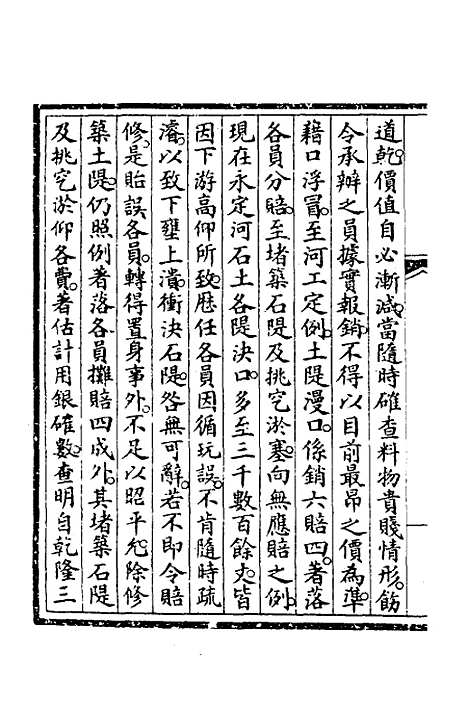 道乾價值自必漸減當隨時確查料物貴賤情形飭
令承辦之員據實報銷不得以目前最昂之價為準
藉口浮冒至河工定例土隄漫口係銷六賠四著落
各員分賠至堵築石隄及挑穵淤塞向無應賠之例
現在永定河石土各隄決口多至三千數百餘丈皆
因下游高仰所致歷任各員因循玩誤不肯隨時疏
濬以致下壅上潰衝決石隄咎無可辭若不即令賠
修是貽誤各員轉得置身事外不足以昭平允除修
築土隄仍照例著落各員攤賠四成外其堵築石隄
及挑穵淤仰各費著估計用銀確數查明自乾隆三